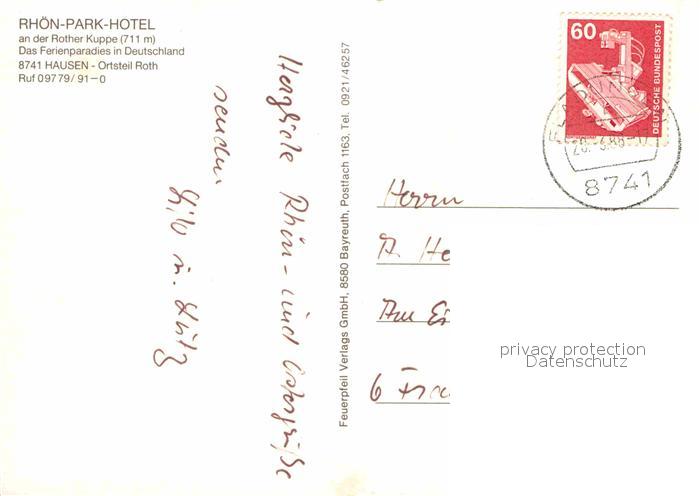 RHÖN-PARK-HOTEL
an der Rother Kuppe (711 m)
Das Ferienparadies in Deutschland
8741 HAUSEN - Ortsteil Roth
Ruf 09779/91-0
Herzliche Rhön- und Ostergrüße
senden
Feuerpfeil Verlags GmbH, 8580 Bayreuth, Postfach 1163, Tel. 0921/46257
60
DEUTSCHE BUNDESPOST
8741
Herrn
A He
Am Ei
6 Fra
privacy protection
Datenschutz